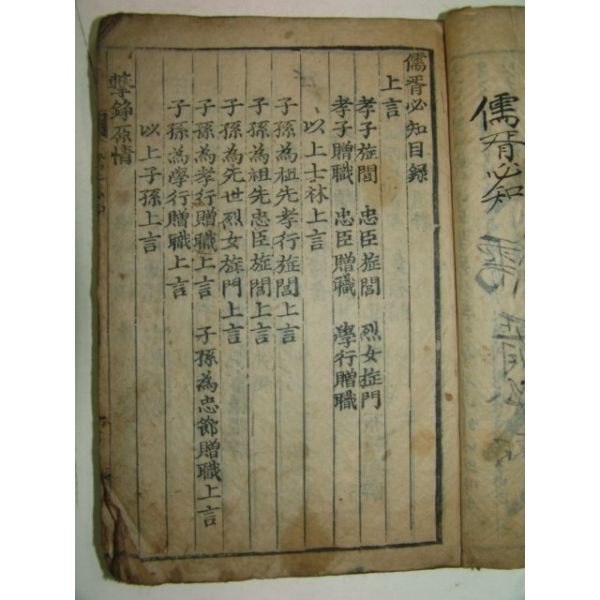 儒胥必知
儒胥必知目録
上言
孝子旌閭 忠臣旌閭 烈女旌門
孝子贈職 忠臣贈職 學行贈職
以上士林上言
子孫為祖先孝行旌閭上言
子孫為祖先忠臣旌閭上言
子孫為先世烈女旌門上言
子孫為孝行贈職上言 子孫為忠節贈職上言
子孫為學行贈職上言
以上子孫上言
擊錚原情